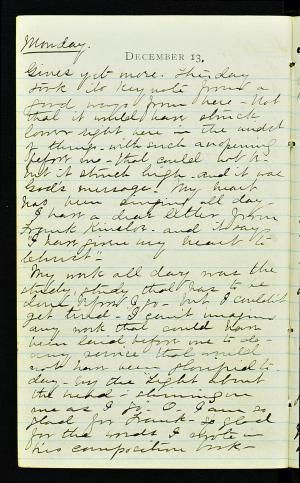 Monday.
DECEMBER 13.
Gives yet more. This day
took its key note from a
good ways from here - Not
that it would have struck
lower right here in the midst
of things - with such an opening
before me - that could not be
but it struck high - and it was
God's message. My heart
has been singing all day -
I have a dear letter from
Frank Kinslow - and it says
"I have given my heart to
Christ".
My work all day was the
steady, study that has to be
done before I go - but I couldn't
get tired - I can't imagine
any work that could have
been laid before me to-day -
any service that would
not have been glorified to
day - by the Light about
the head - shining in
me as I go. O, I am so
glad for Frank - so glad
for the words I wrote in
his composition book -